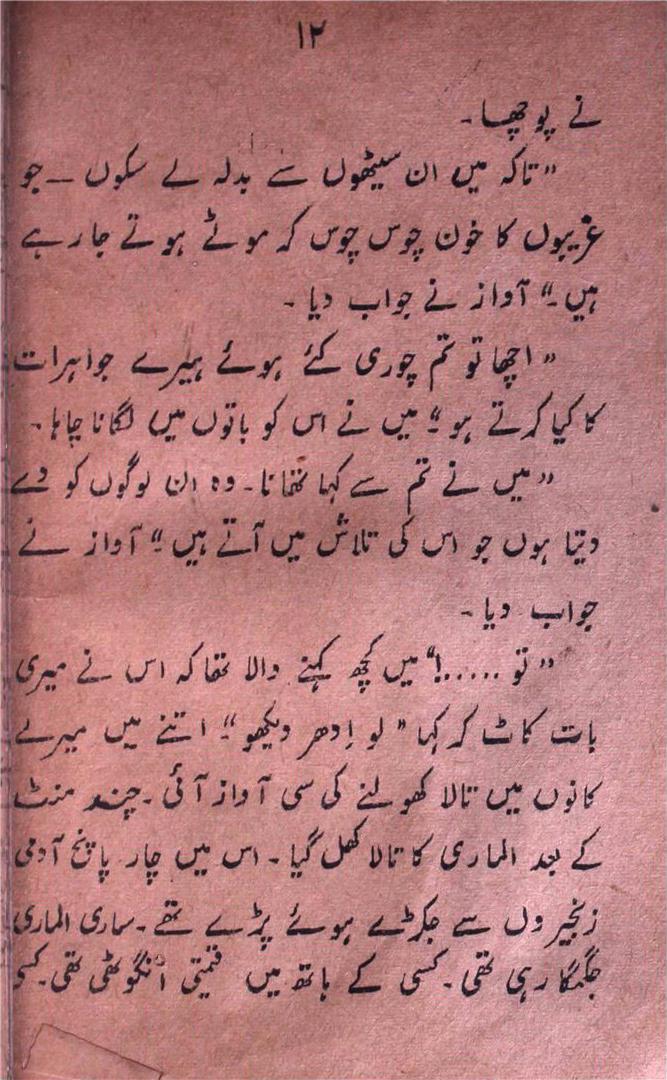 ۱۲
نے پوچھا۔
"تاکہ میں ان سیٹھوں سے بدلہ لے سکوں ــ جو
غریبوں کا خون چوس چوس کر موٹے ہوتے جا رہے
ہیں۔" آواز نے جواب دیا۔
"اچھا تو تم چوری کئے ہوئے ہیرے جواہرات
کا کیا کرتے ہو" میں نے اس کو باتوں میں لگانا چاہا۔
"میں نے تم سے کہا تھا نا۔ وہ ان لوگوں کو دے
دیتا ہوں جو اس کی تلاش میں آتے ہیں" آواز نے
جواب دیا۔
"تو .....!" میں کچھ کہنے والا تھا کہ اس نے میری
بات کاٹ کر کہا "لو اِدھر دیکھو"۔ اتنے میں میرے
کانوں میں تالا کھولنے کی سی آواز آئی۔ چند منٹ
کے بعد الماری کا تالا کھل گیا۔ اس میں چار پانچ آدمی
زنجیروں سے جکڑے ہوئے پڑے تھے۔ ساری الماری
جگمگا رہی تھی۔ کسی کے ہاتھ میں قیمتی انگوٹھی تھی۔ کسی